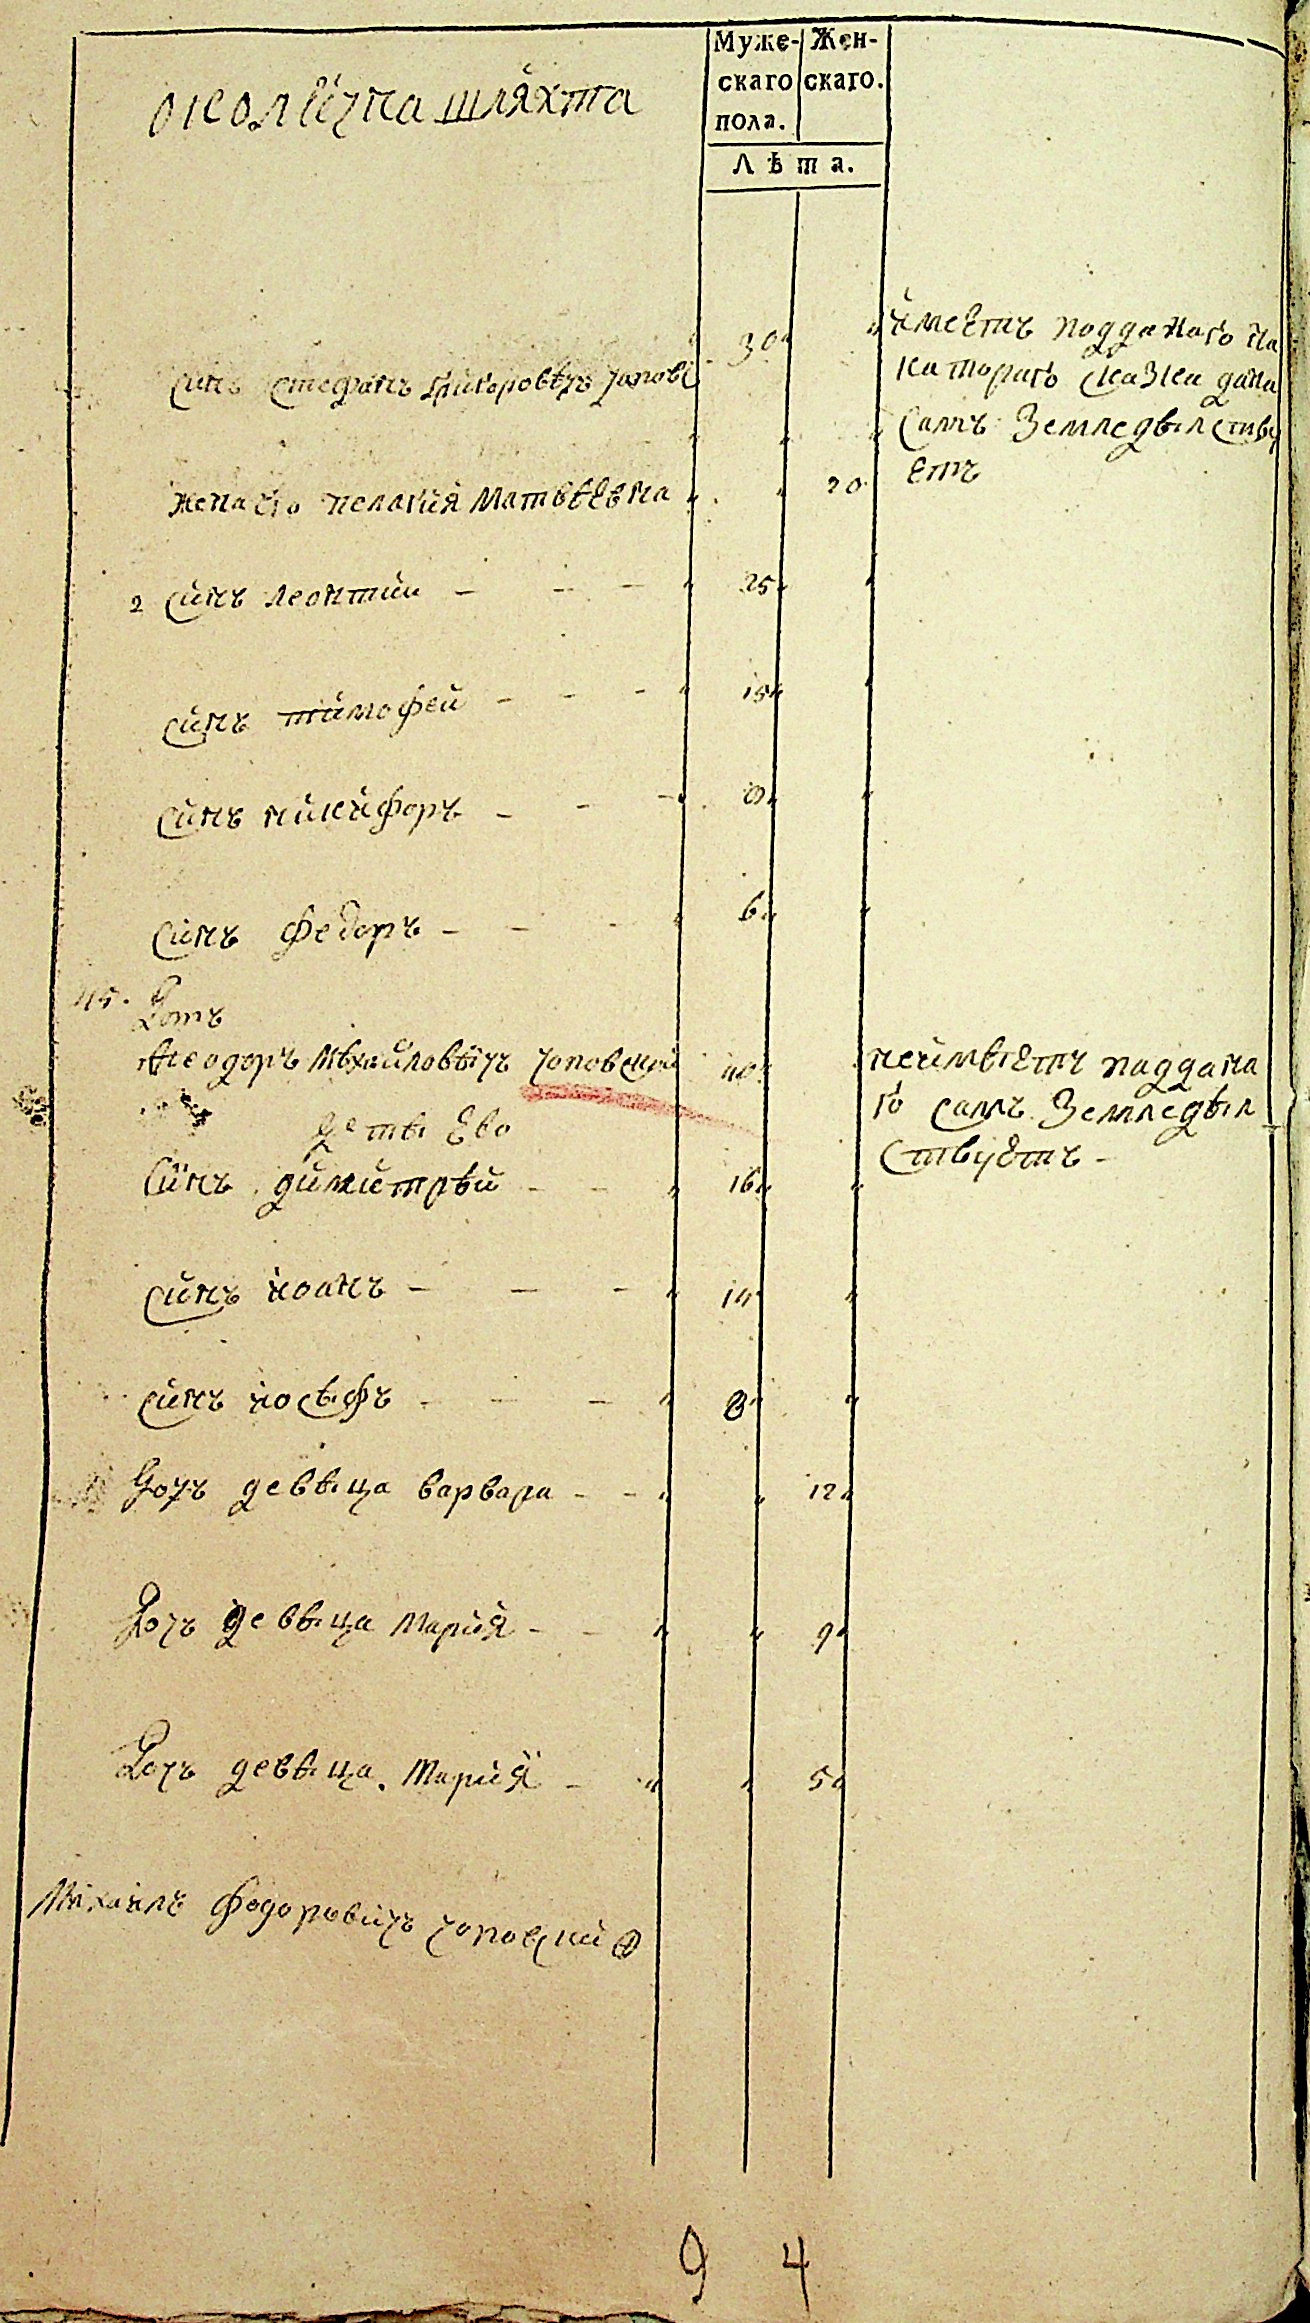 околична шляхта
Муже- Жен-
скаго скаго.
пола.
Лѣта.
синъ стефанъ Григоровѣчъ чоповс 30
имеетъ подданаго на
каторагъ сказка дана
самъ Земледѣлству
етъ
жена его пелагия Матвѣевна 20
2 синъ леонтий - - - 25
синъ тимофей - - - 15
синъ никифоръ - - -
синъ федоръ - - - 6
45.
Феодоръ Мѣхайловѣчъ чоповский 40
неимѣетъ паддана
го самъ Земледѣл
ствуетъ -
дети Ево
Синъ димитрѣй - - 16
синъ иоанъ - - - 14
синъ иосѣфъ - - - 8
дочъ девѣца варвара - - 12
дочъ девѣца Мария - - 9
дочъ девѣца Мария - 5
Михаилъ Федоровичъ чоповский
9 4